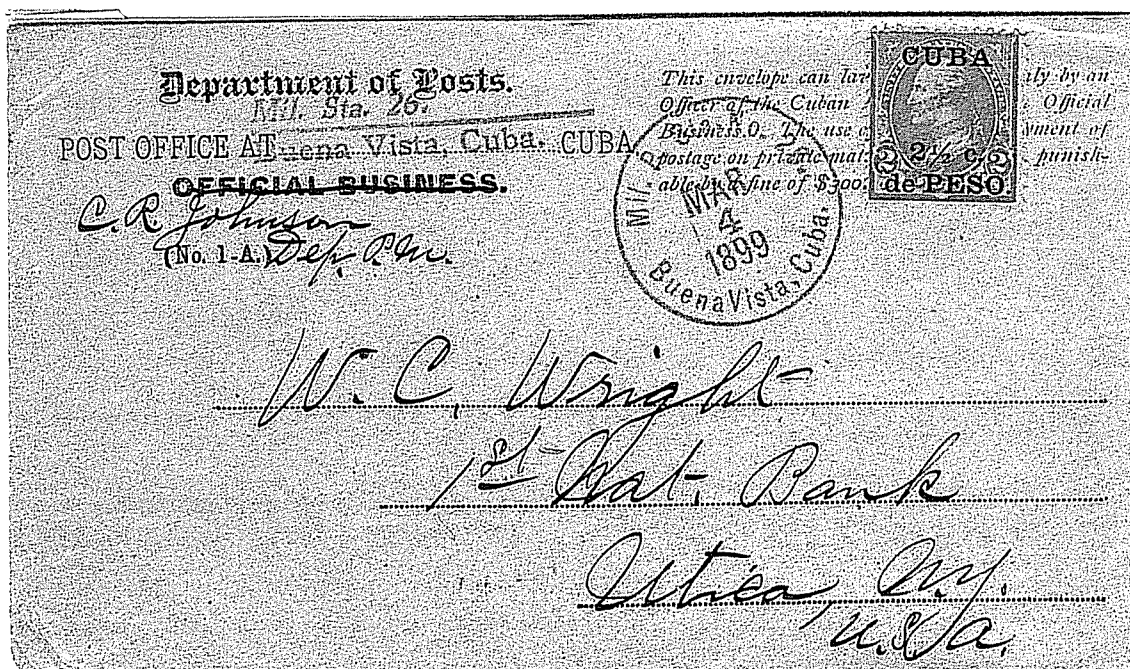 Department of Posts.
Mil. Sta. 26.
POST OFFICE AT Buena Vista, Cuba. CUBA
OFFICIAL BUSINESS.
C. R. Johnson
(No. 1-A.) Dep. P.M.
This envelope can ily by an
Officer of the Cuban Official
Business. The use yment of
postage on private punish-
able by a fine of $300.
CUBA
2 2½ c. 2
de PESO
Mil.
MAR
4
1899
Buena Vista, Cuba.
W. C. Wright
1st Nat. Bank
Utica, N.Y.
U.S.A.